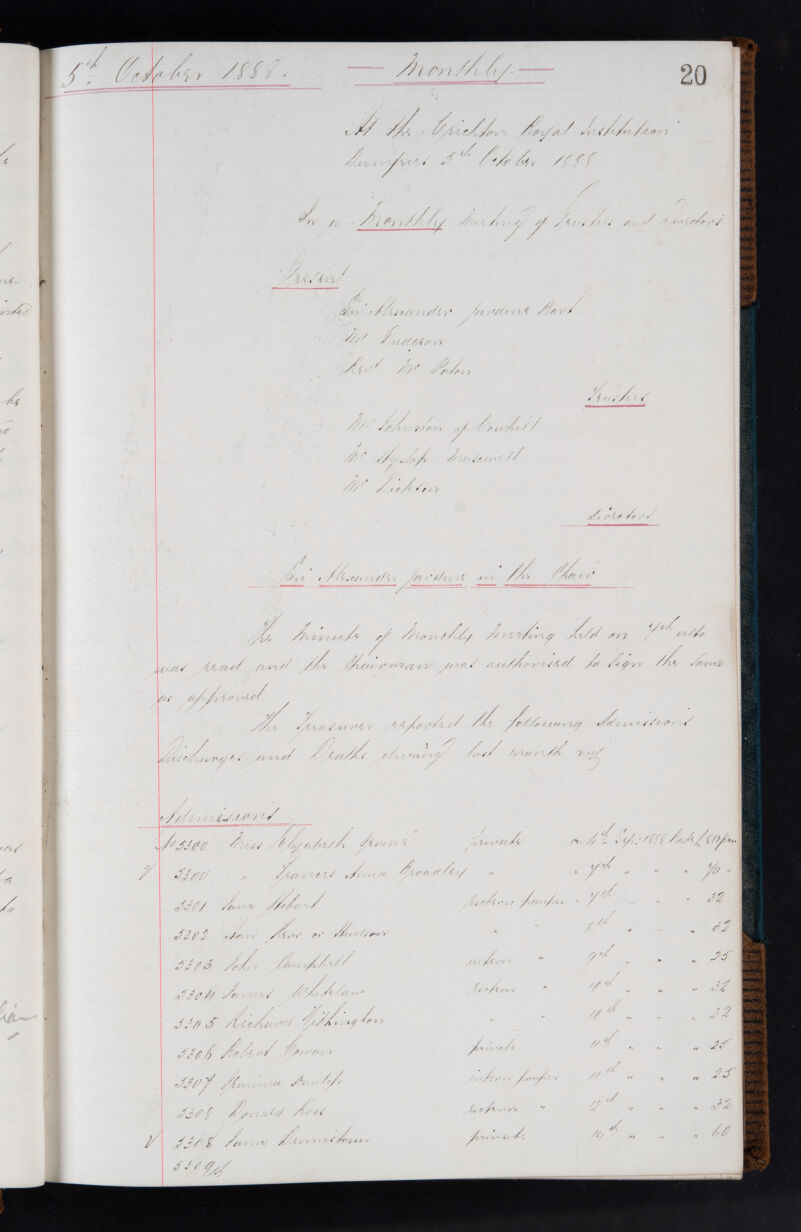 5th October 1888. — Monthly — 20
At the Crichton Royal Institution
Dumfries 5th October 1888
In a Monthly Meeting of Trustees and Directors
Present
Sir Alexander Jardine Bart
Mr
Revd Mr Paton
Trustees
Mr Johnston of Cowhill
Mr Hyslop Maxwell
Mr Dickson
Directors
Sir Alexander Jardine in the Chair
The Minute of Monthly Meeting held on 7th ulto
was read and the Chairman was authorised to sign the same
as approved
The Treasurer reported the following Admissions
Discharges and Deaths during last month viz
Admissions
No 5300 Miss Elizabeth private on 4th Sep: 1888 Rate £80 p an
√ 5300 " Frances Anna Broadley " " 7th " " " 70 "
5301 Jane Hobart extern pauper " 7th " " " 32
5302 Kerr or " " 8th " " " 32
5303 John Campbell intern " 9th " " " 25
5304 James Whitelaw extern " 10th " " " 32
5305 Richard Withington " " 10th " " " 32
5306 Robert Cowan private 11th " " " 25
5307 Jemima Dunlop intern pauper 11th " " " 25
Donald Ross extern " 12th " " " 32
√ 5308 Dennistoun private 14th " " " 60
5309